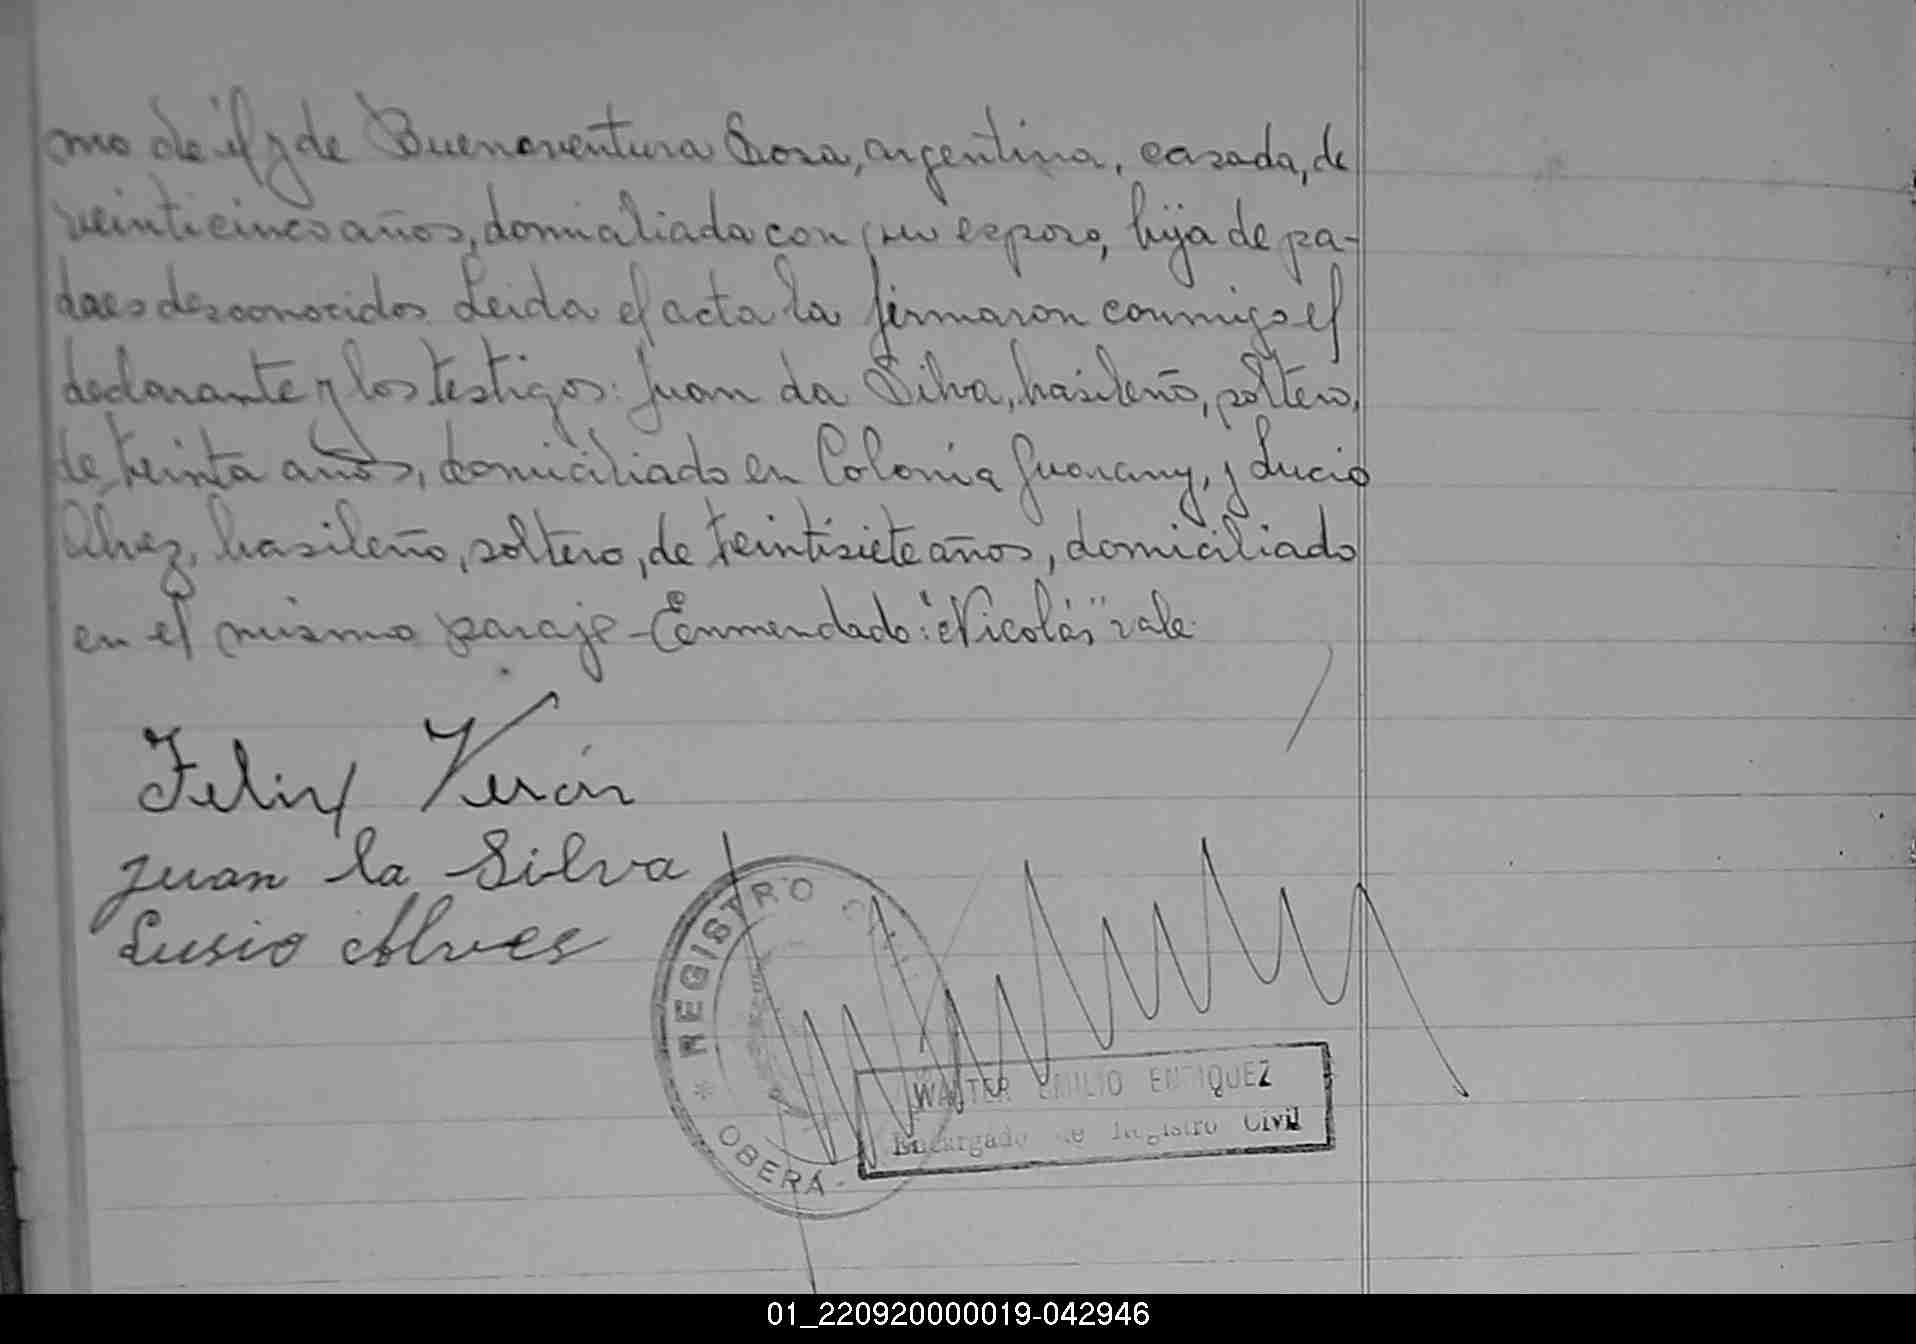 mo de él y de Buenaventura Sosa, argentina, casada, de
veinticinco años, domiciliada con su esposo, hija de pa-
dres desconocidos. Leida el acta la firmaron conmigo el
declarante y los testigos: Juan da Silva, brasileño, soltero,
de treinta años, domiciliado en Colonia Guarany, y Lucio
Alvez, brasileño, soltero, de treintisiete años, domiciliado
en el mismo paraje - Enmendado: "Nicolás" vale.
Felix Verón
Juan la Silva
Lusio Alves
REGISTRO CIVIL
* OBERÁ -
WALTER EMILIO ENRIQUEZ
Encargado de Registro Civil
01_220920000019-042946